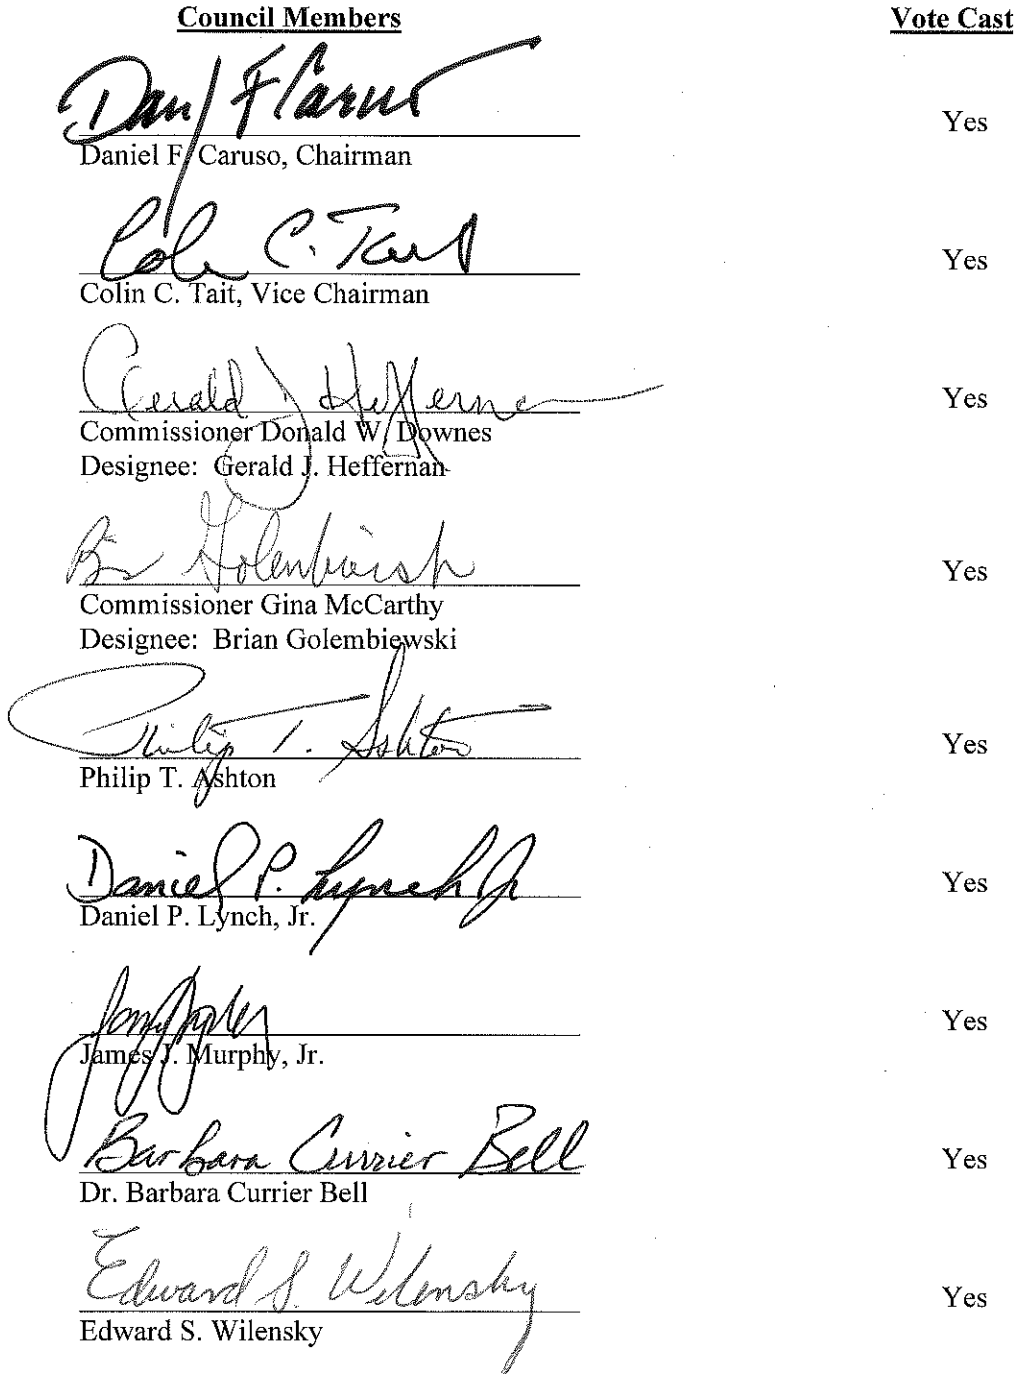 Council Members Vote Cast
Daniel F. Caruso Yes
Daniel F. Caruso, Chairman
Colin C. Tait Yes
Colin C. Tait, Vice Chairman
Gerald J. Heffernan Yes
Commissioner Donald W. Downes
Designee: Gerald J. Heffernan
Golembiewski Yes
Commissioner Gina McCarthy
Designee: Brian Golembiewski
Philip T. Ashton Yes
Philip T. Ashton
Daniel P. Lynch Jr Yes
Daniel P. Lynch, Jr.
Yes
James J. Murphy, Jr.
Barbara Currier Bell Yes
Dr. Barbara Currier Bell
Edward S. Wilensky Yes
Edward S. Wilensky